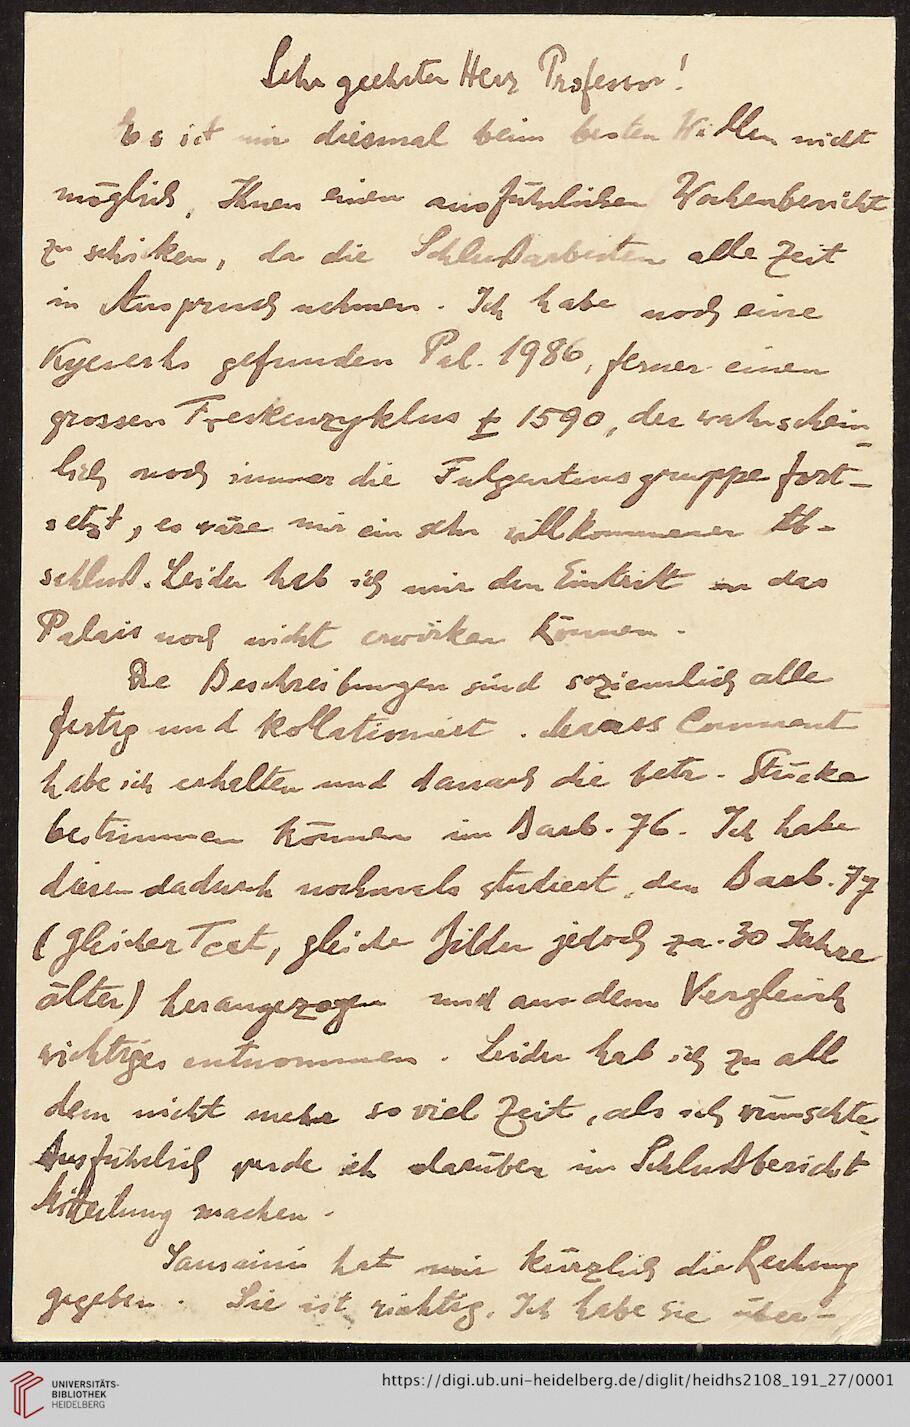 Sehr geehrter Herr Professor!
Es ist mir diesmal beim besten Willen nicht
möglich, Ihnen einen ausführlichen Wochenbericht
zu schicken, da die Schlußarbeiten alle Zeit
in Anspruch nehmen. Ich habe noch eine
Kyeserhs gefunden Pal. 1986, ferner einen
grossen Freskenzyklus ± 1590, der wahrschein-
lich noch immer die Fulgentiusgruppe fort-
setzt, es wäre mir ein sehr willkommener Ab-
schluß. Leider hab ich mir den Eintritt in das
Palais noch nicht erwirken können.
Die Beschreibungen sind soziemlich alle
fertig und kollationiert. Comment
habe ich erhalten und danach die betr. Stücke
bestimmen können im Barb. 76. Ich habe
diesen dadurch nochmals studiert, den Barb. 77
(gleicher Text, gleiche Bilder jedoch za. 30 Jahre
älter) herangezogen und aus dem Vergleich
wichtiges entnommen. Leider hab ich zu all
dem nicht mehr so viel Zeit, als ich wünschte.
Ausführlich werde ich darüber im Schlußbericht
Mitteilung machen.
Sansaini hat mir kürzlich die Rechnung
gegeben. Sie ist richtig. Ich habe sie über-
UNIVERSITÄTS-
BIBLIOTHEK
HEIDELBERG
https://digi.ub.uni-heidelberg.de/diglit/heidhs2108_191_27/0001